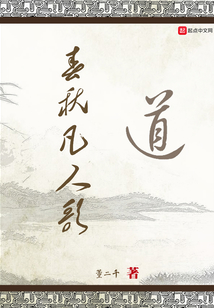 起点中文网
道
春秋凡人歌
董二千 著